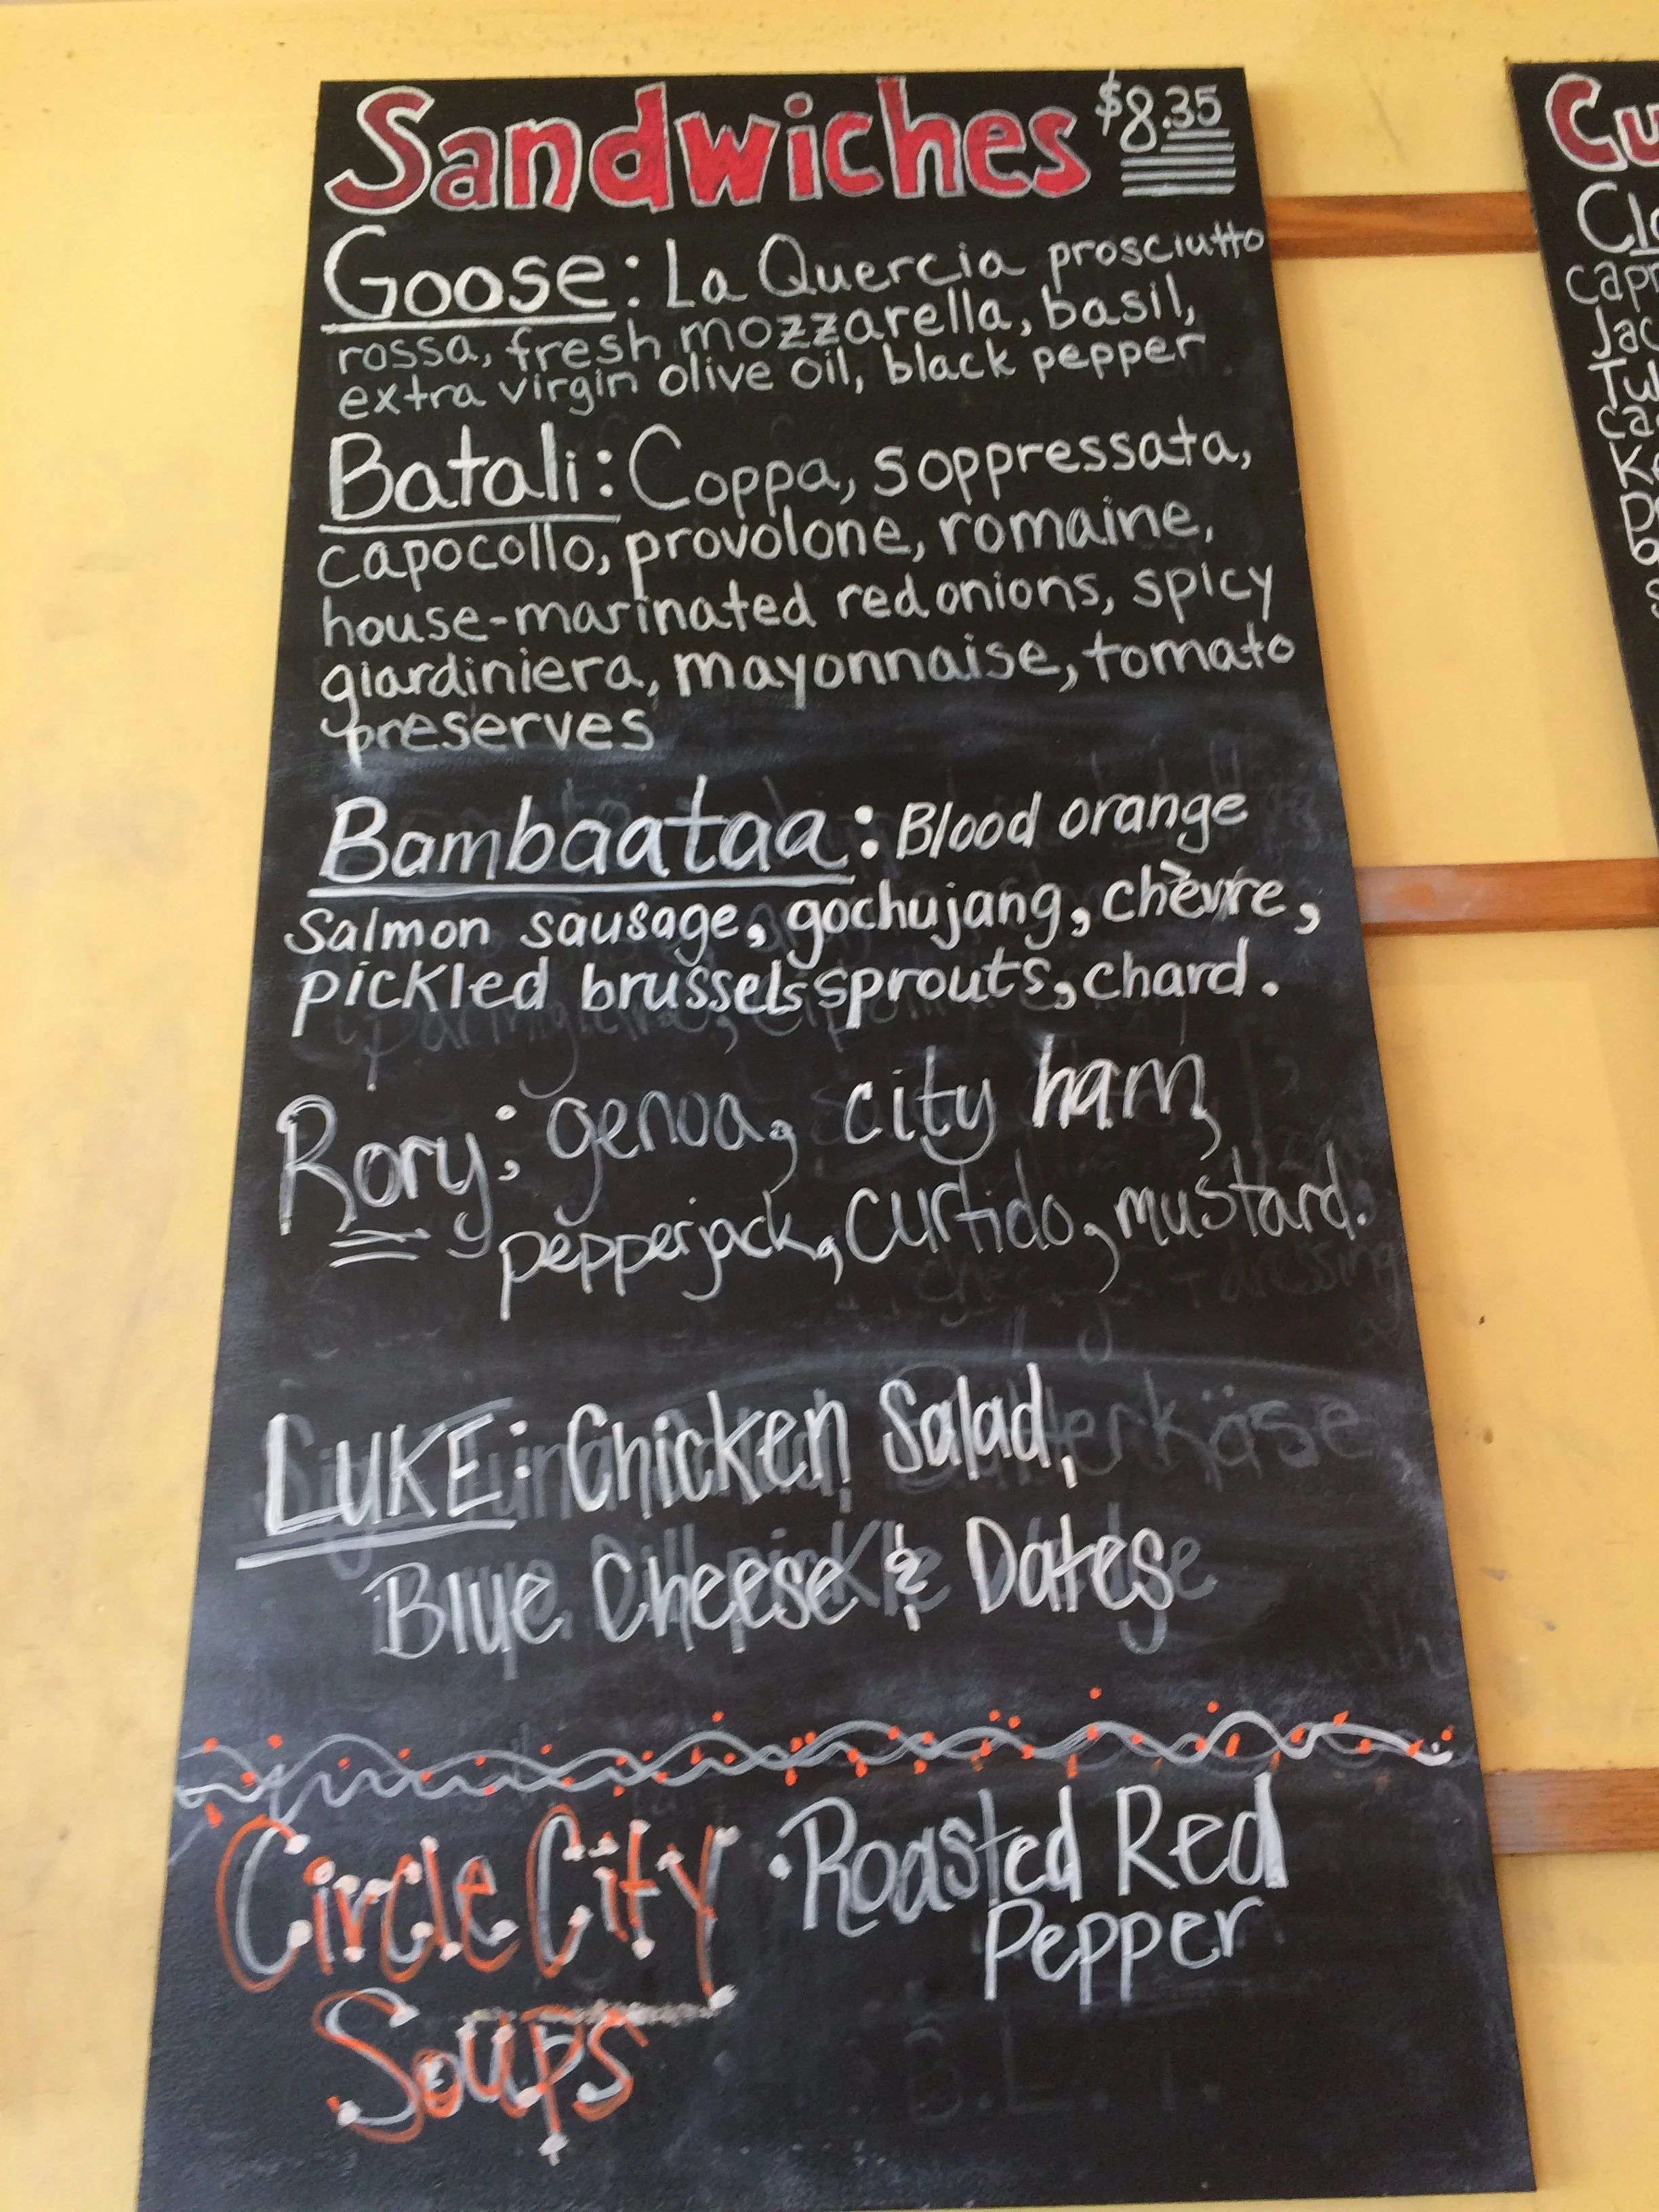 Sandwiches $8.35
Goose: La Quercia prosciutto
rossa, fresh mozzarella, basil,
extra virgin olive oil, black pepper
Batali: Coppa, soppressata,
capocollo, provolone, romaine,
house-marinated red onions, spicy
giardiniera, mayonnaise, tomato
preserves
Bambaataa: Blood orange
Salmon sausage, gochujang, chèvre,
pickled brussels sprouts, chard.
Rory: genoa, city ham,
pepperjack, curtido, mustard.
LUKE: Chicken Salad,
Blue Cheese & Dates
Circle City
Soups
• Roasted Red
Pepper
B.L.T.
Cu